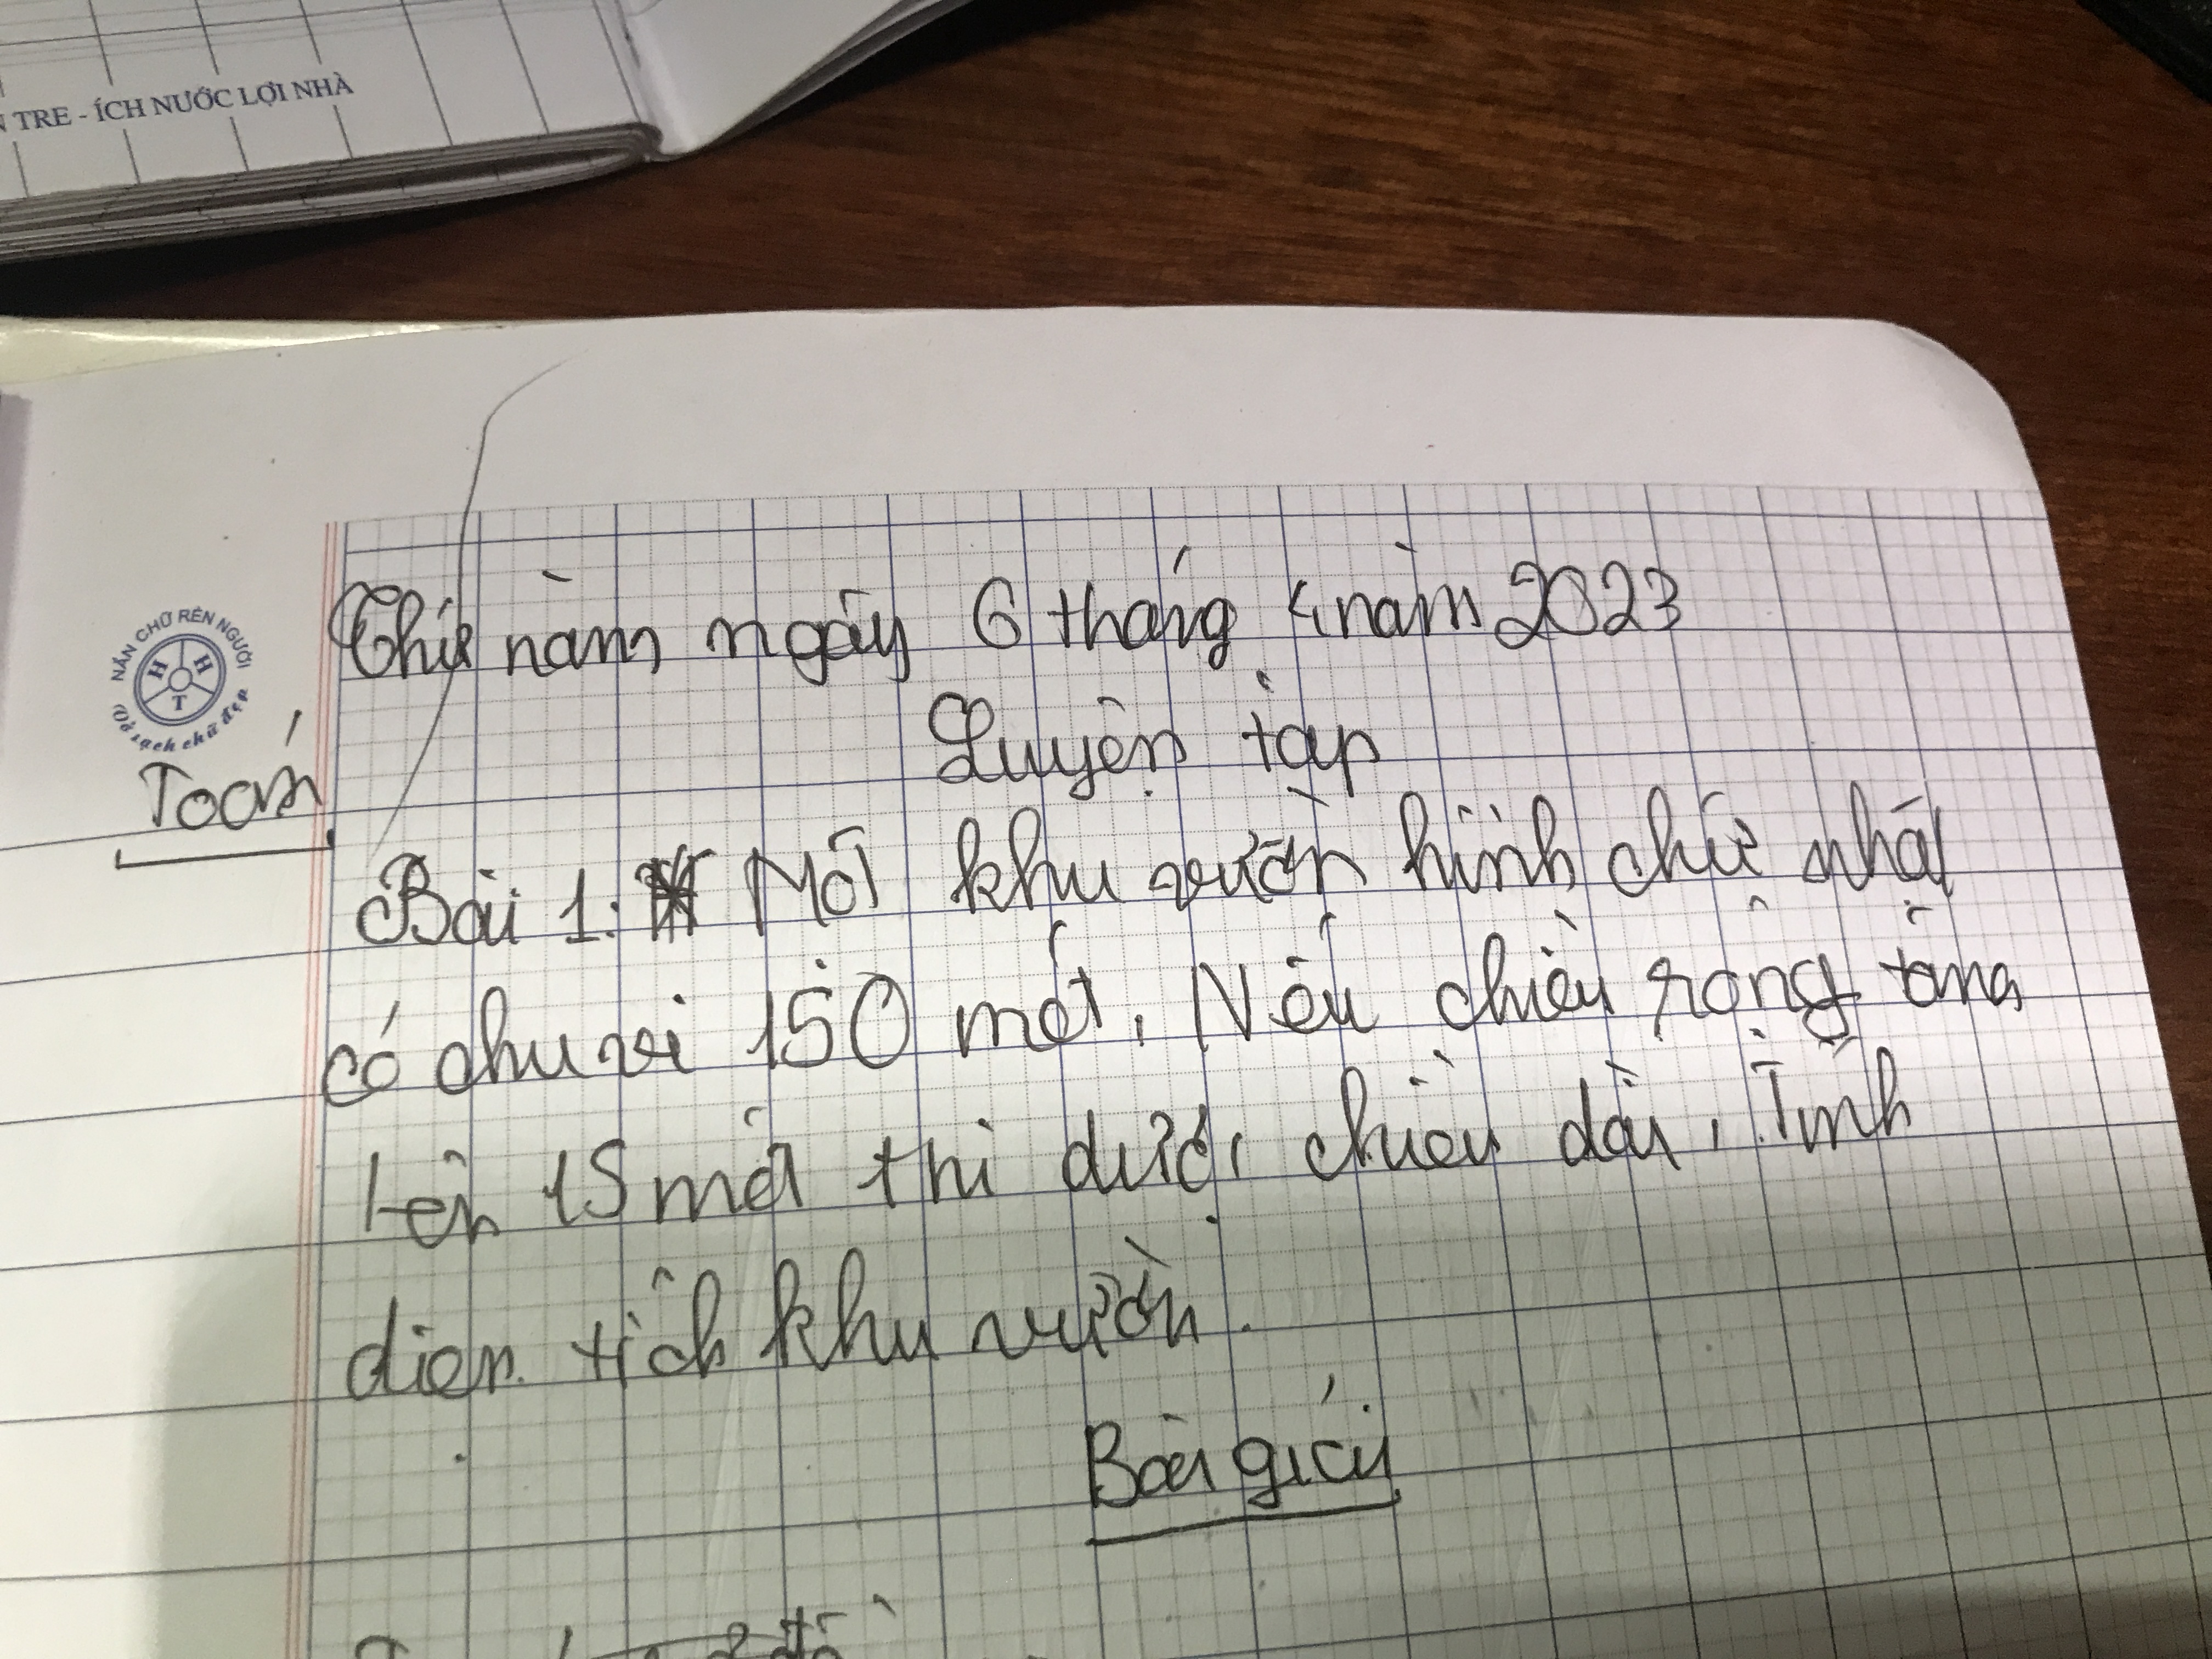 N TRE - ÍCH NƯỚC LỢI NHÀ
NẮN CHỮ RÈN NGƯỜI
H H
T
Vở sạch chữ đẹp
Thứ năm ngày 6 tháng 4 năm 2023
Luyện tập
Toán
Bài 1: Một khu vườn hình chữ nhật
có chu vi 150 mét. Nếu chiều rộng tăng
lên 15 mét thì được chiều dài. Tính
diện tích khu vườn.
Bài giải
đồ